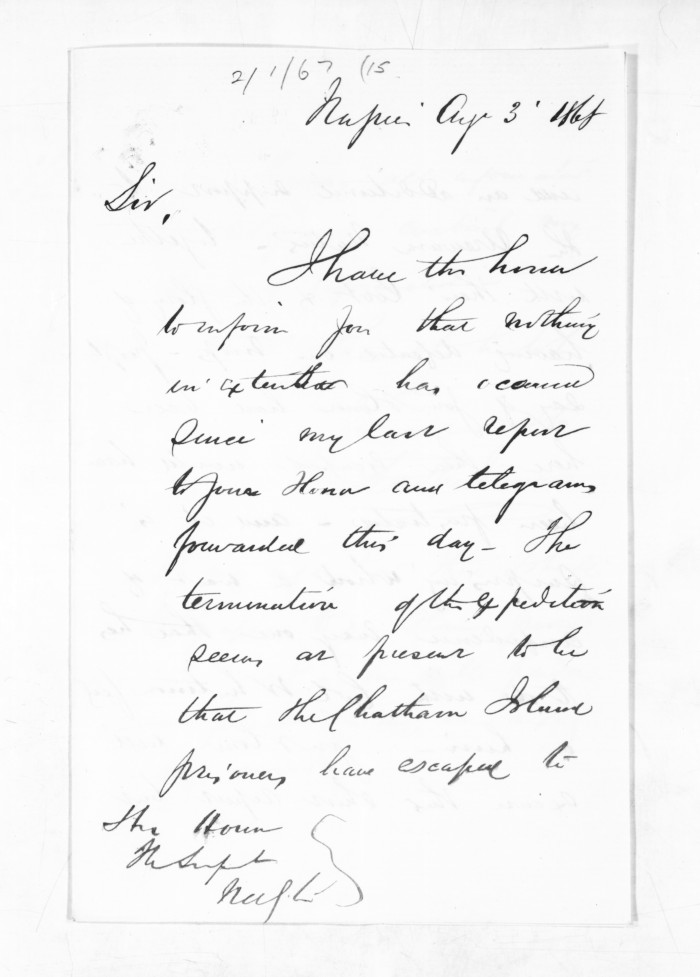 2/1/67 (15
Napier Aug 3 1868
Sir,
I have the honor
to inform you that nothing
in has occurred
since my last report
to your Honor and telegrams
forwarded this day - The
termination of the Expedition
seems at present to be
that the Chatham Island
prisoners have escaped to
His Honor
The Supt